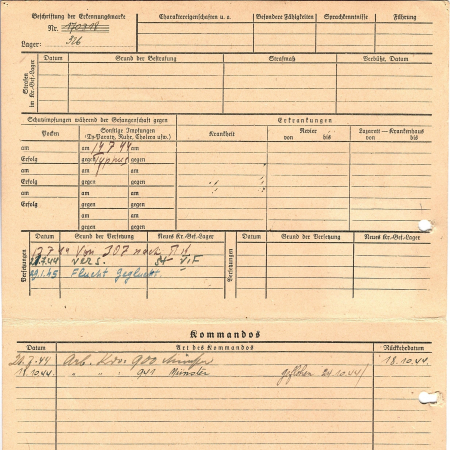 Beschriftung der Erkennungsmarke
Nr. 170318
Lager: 326
Charaktereigenschaften u. a.
Besondere Fähigkeiten
Sprachkenntnisse
Führung
Strafen im Kr.-Gef.-Lager
Datum
Grund der Bestrafung
Strafmaß
Verbüßt, Datum
Schutzimpfungen während der Gefangenschaft gegen
Erkrankungen
Pocken
Sonstige Impfungen
(Ty-Paraty, Ruhr, Cholera usw.)
Krankheit
Revier
von bis
Lazarett — Krankenhaus
von bis
am am 14.7.44 am
Erfolg gegen Typhus gegen
am am am
Erfolg gegen gegen
am am am
Erfolg gegen gegen
am am
gegen gegen
Versetzungen
Datum Grund der Versetzung Neues Kr.-Gef.-Lager
Versetzungen
Datum Grund der Versetzung Neues Kr.-Gef.-Lager
Von 307 nach
.7.44 vers. St VI F
29.1.45 Flucht Geglückt.
Kommandos
Datum Art des Kommandos Rückkehrdatum
21.7.44 Arb. Kdo. 900 Münster 18.10.44.
18.10.44. " " 941 Münster geflohen 24.10.44